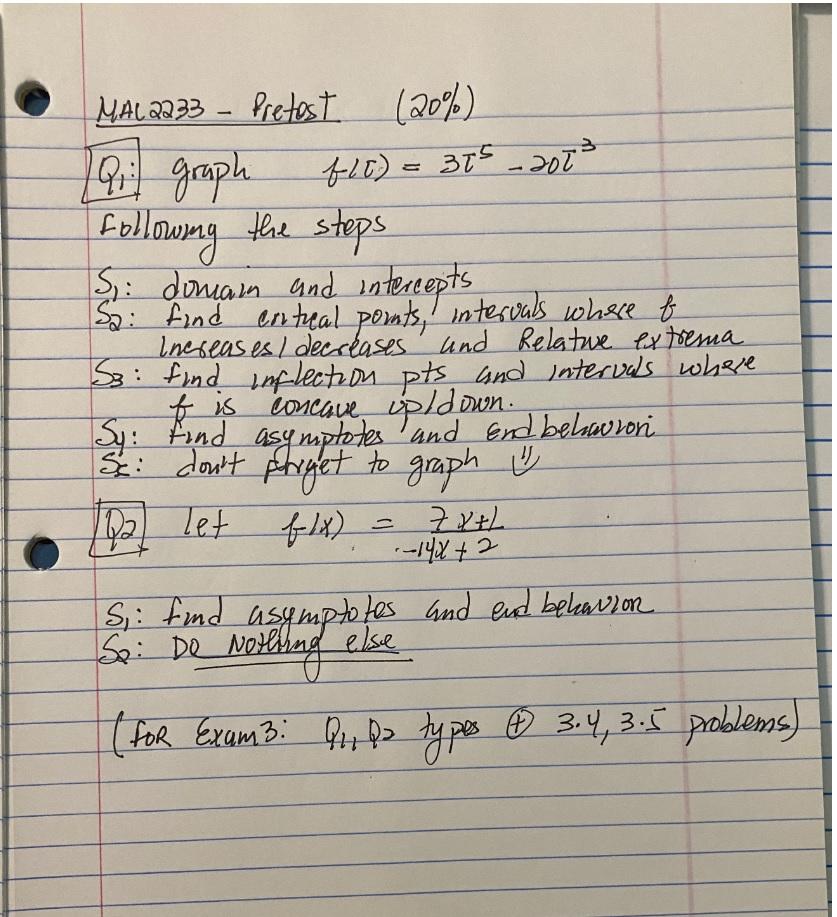 MAC2233 - Pretest (20%)
Q1: graph f(t) = 3t⁵ - 20t³
Following the steps
S1: domain and intercepts
S2: find critical points, intervals where f
increases/decreases and Relative extrema
S3: find inflection pts and intervals where
f is concave up/down.
S4: find asymptotes and end behavior
S5: don't forget to graph
Q2 let f(x) = 7x+1
-14x + 2
S1: find asymptotes and end behavior
S2: DO Nothing else
(FOR Exam3: Q1, Q2 types ⊕ 3.4, 3.5 problems)